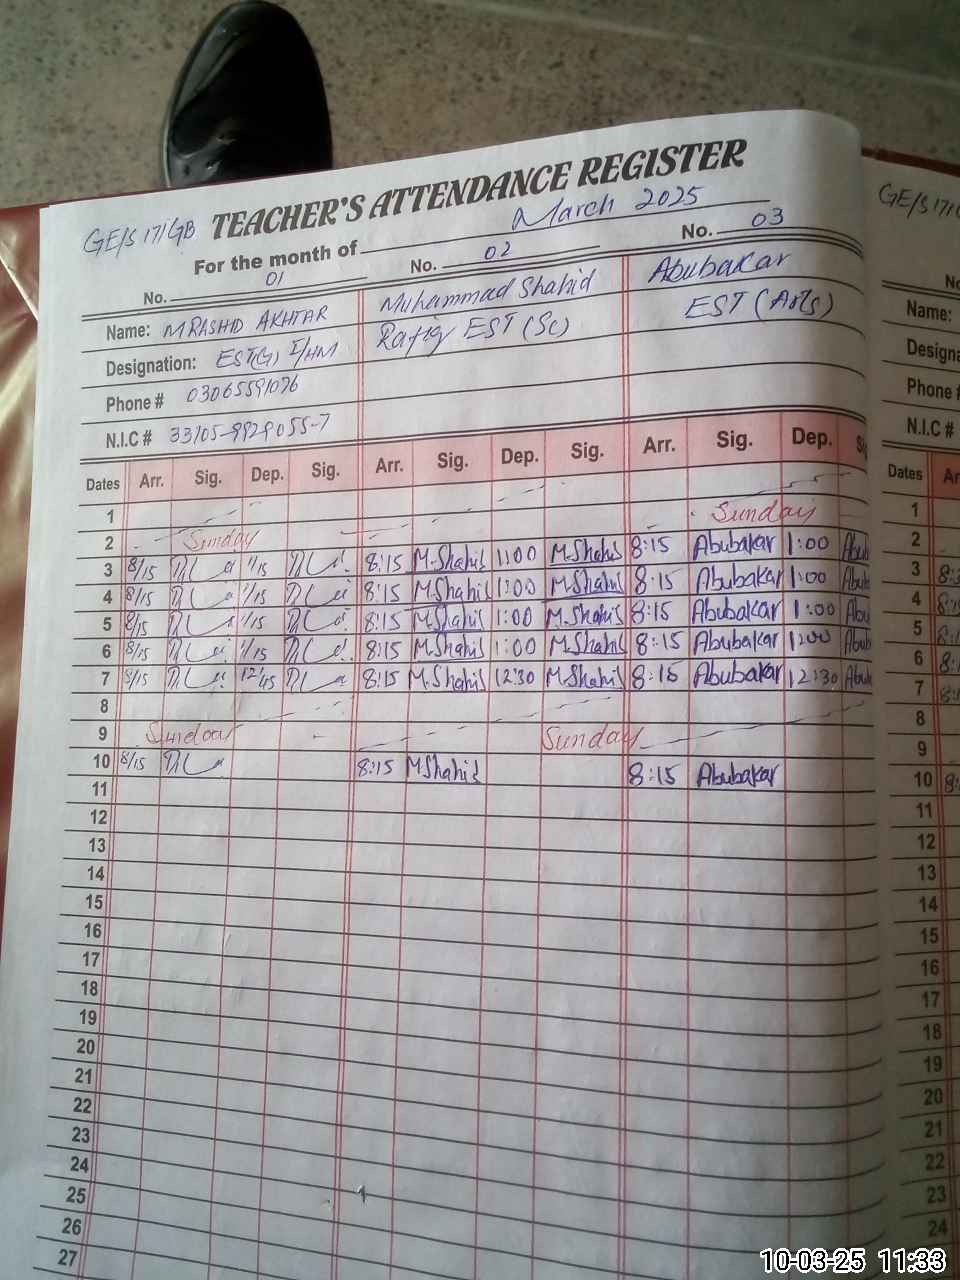 TEACHER'S ATTENDANCE REGISTER
GE/S 171/GB
For the month of March 2025
No. 01 No. 02 No. 03
Name: M RASHID AKHTAR Muhammad Shahid Abubakar
Designation: EST(G) I/HM Rafiq EST (Sc) EST (Arts)
Phone # 03065591076
N.I.C # 33105-9929055-7
Dates Arr. Sig. Dep. Sig. Arr. Sig. Dep. Sig. Arr. Sig. Dep.
1 Sunday
2 Sunday 8:15 Abubakar 1:00
3 8/15 1/15 8:15 M.Shahid 1:00 M.Shahid 8:15 Abubakar 1:00
4 8/15 1/15 8:15 M.Shahid 1:00 M.Shahid 8:15 Abubakar 1:00
5 8/15 1/15 8:15 M.Shahid 1:00 M.Shahid 8:15 Abubakar 1:00
6 8/15 1/15 8:15 M.Shahid 1:00 M.Shahid
7 8/15 12:45 8:15 M.Shahid 12:30 M.Shahid 8:15 Abubakar 12:30
8
9 Sunday Sunday
10 8/15 8:15 MShahid 8:15 Abubakar
11
12
13
14
15
16
17
18
19
20
21
22
23
24
25
26
27
GE/S 171/
Name:
Designa
Phone #
N.I.C #
Dates
1
2
3
4
5
6
7
8
9
10
11
12
13
14
15
16
17
18
19
20
21
22
23
24
10-03-25 11:33